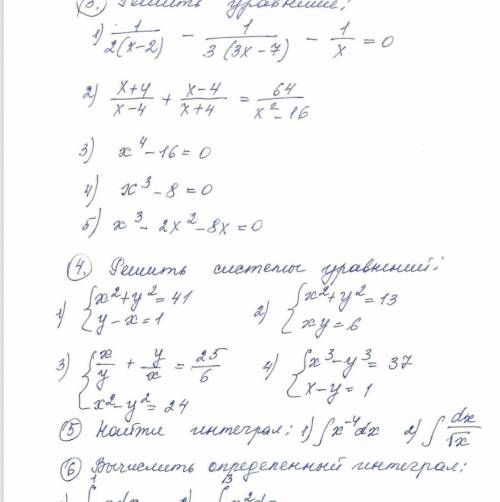 3. Решить уравнение:
1) 1/(2(x-2)) - 1/(3(3x-7)) - 1/x = 0
2) (x+4)/(x-4) + (x-4)/(x+4) = 64/(x²-16)
3) x⁴-16=0
4) x³-8=0
5) x³-2x²-8x=0
4. Решить системы уравнений:
1) {x²+y²=41 {y-x=1 2) {x²+y²=13 {xy=6
3) {x/y + y/x = 25/6 {x²-y²=24 4) {x³-y³=37 {x-y=1
5 Найти интеграл: 1) ∫x⁻⁴dx 2) ∫dx/√x
6 Вычислить определенный интеграл: